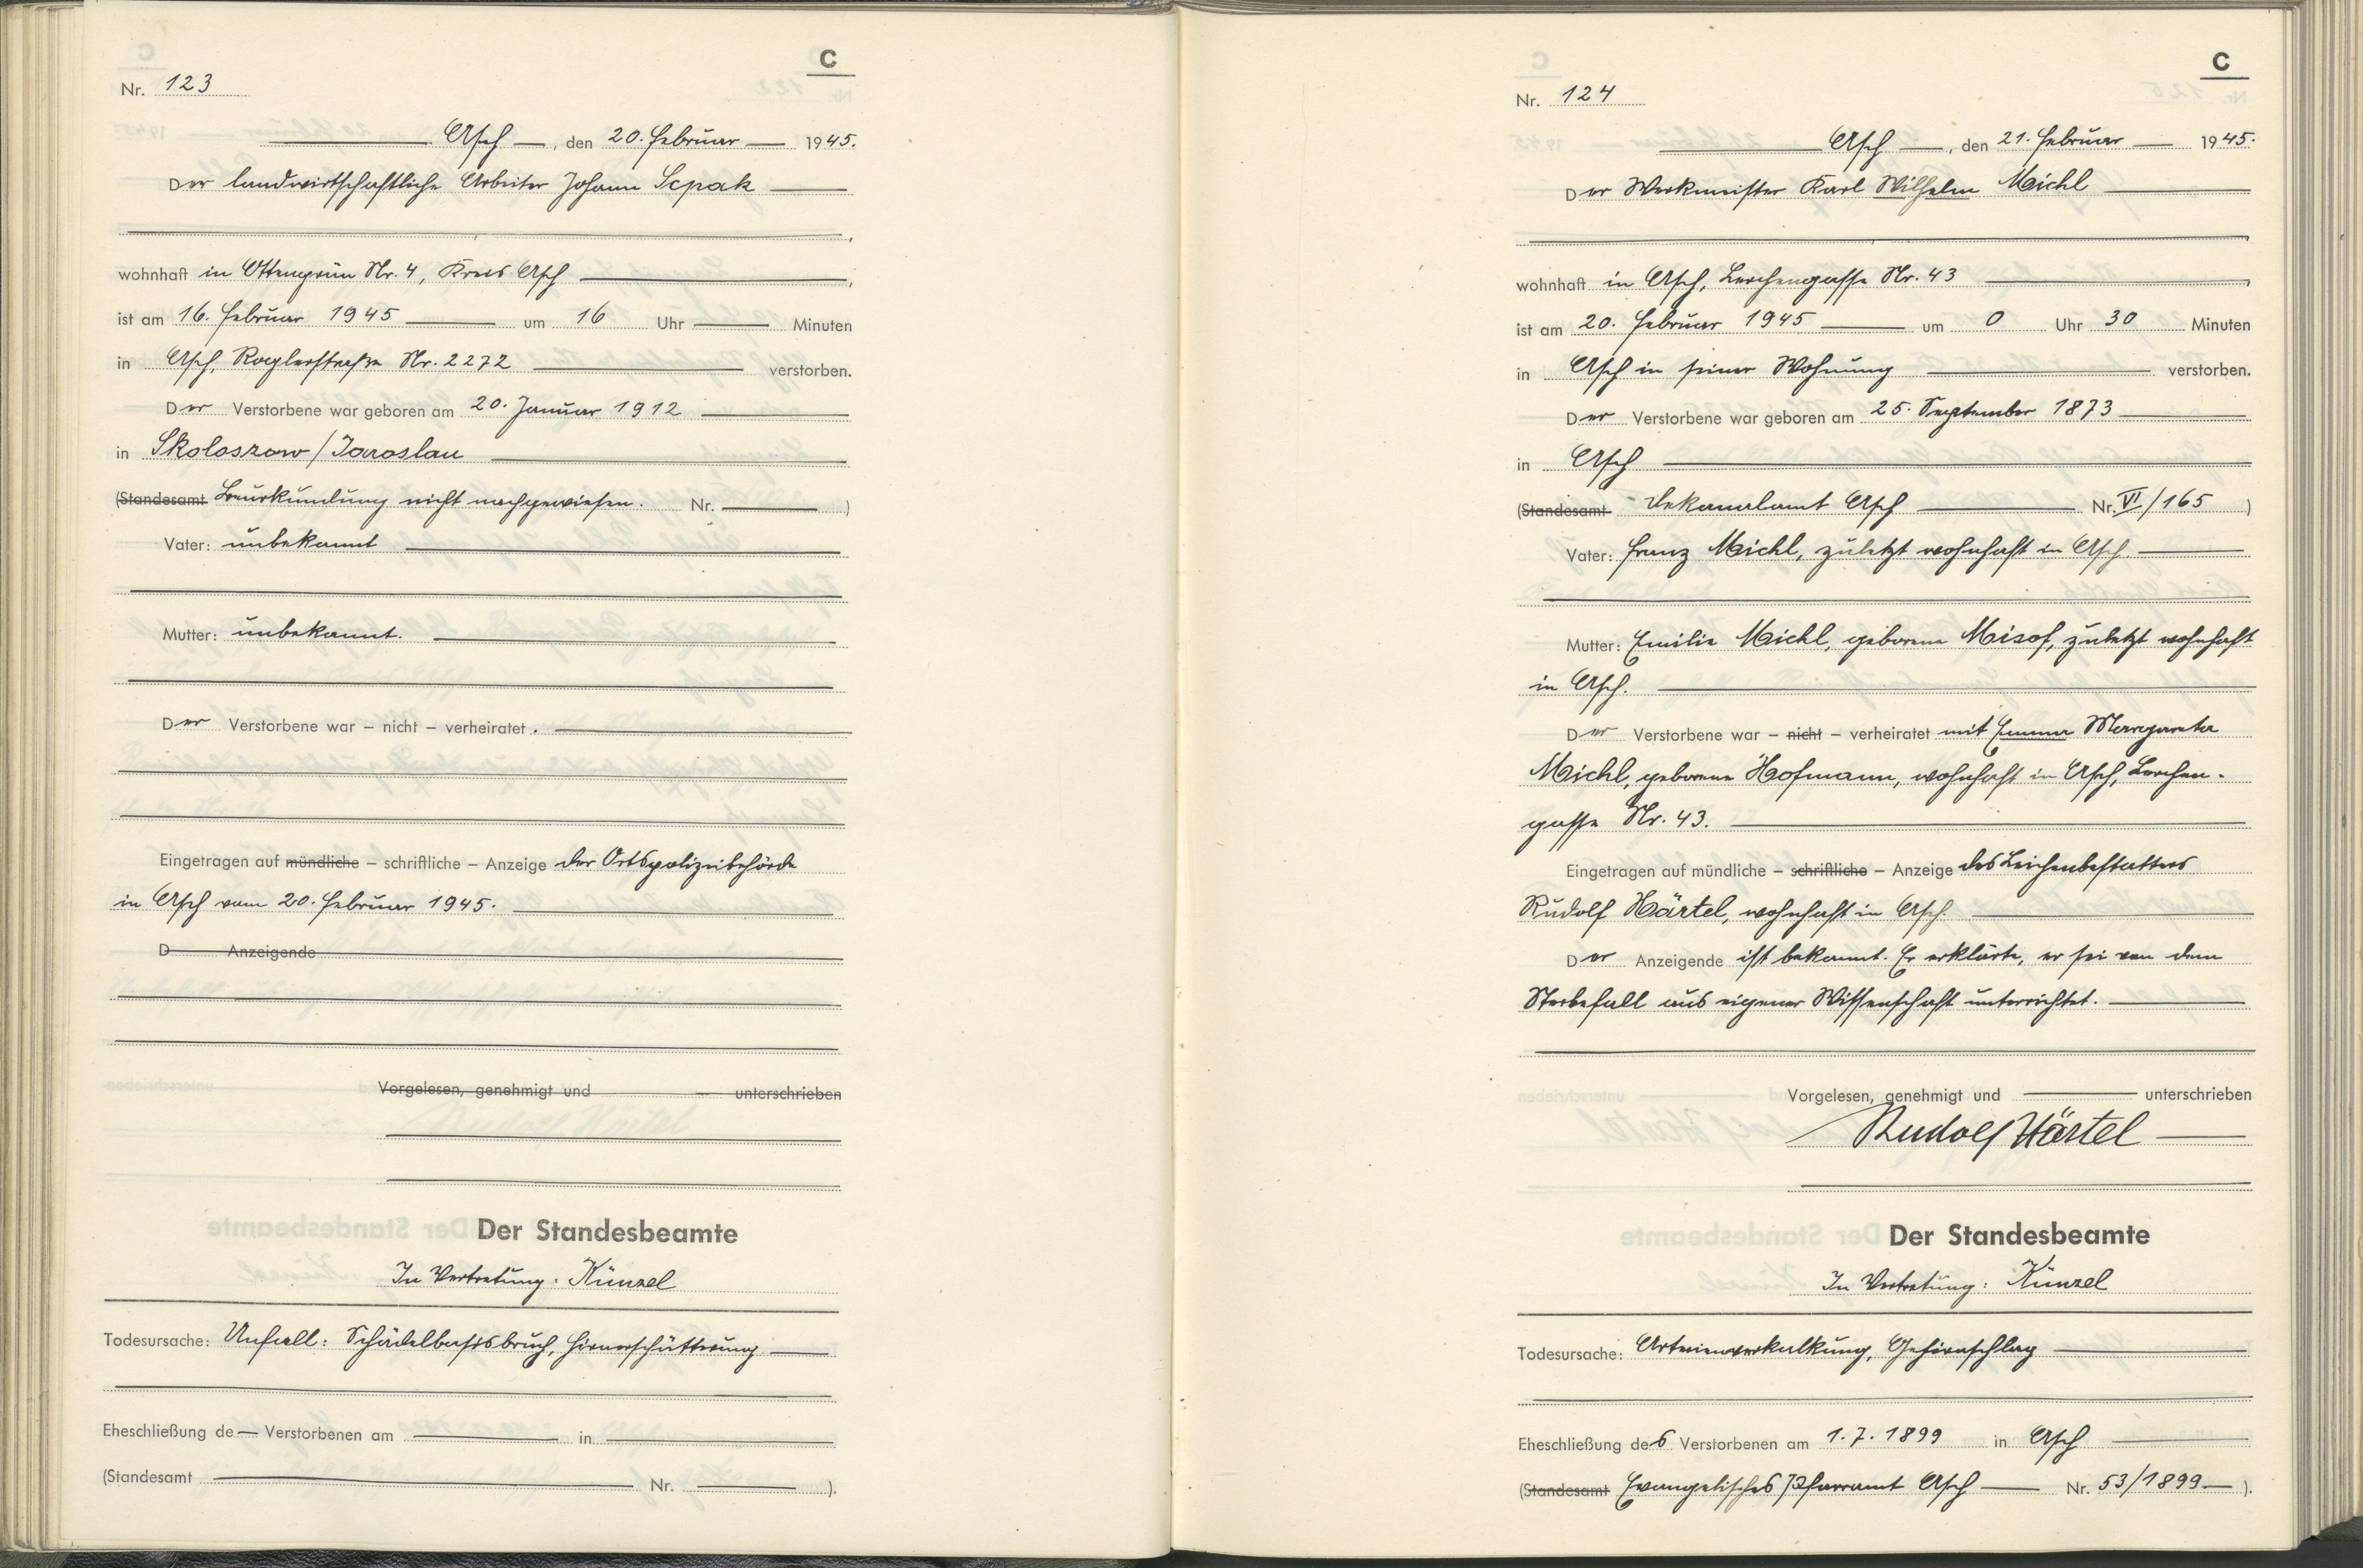 C
Nr. 123
Asch, den 20. Februar 1945.
Der landwirtschaftliche Arbeiter Johann Scpak
wohnhaft in Ottengrün Nr. 4, Kreis Asch
ist am 16. Februar 1945 um 16 Uhr Minuten
in Asch, Roglerstraße Nr. 2272 verstorben.
Der Verstorbene war geboren am 20. Januar 1912
in Skoloszow/Jaroslau
(Standesamt Beurkundung nicht nachgewiesen. Nr. )
Vater: unbekannt
Mutter: unbekannt.
Der Verstorbene war – nicht – verheiratet.
Eingetragen auf mündliche – schriftliche – Anzeige der Ortspolizeibehörde
in Asch vom 20. Februar 1945.
D Anzeigende
Vorgelesen, genehmigt und unterschrieben
Der Standesbeamte
In Vertretung: Künzel
Todesursache: Unfall: Schädelbasisbruch, Hirnerschütterung
Eheschließung de Verstorbenen am in
(Standesamt Nr. ).
C
Nr. 124
Asch, den 21. Februar 1945.
Der Werkmeister Karl Wilhelm Michl
wohnhaft in Asch, Lerchengasse Nr. 43
ist am 20. Februar 1945 um 0 Uhr 30 Minuten
in Asch in seiner Wohnung verstorben.
Der Verstorbene war geboren am 25. September 1873
in Asch
(Standesamt Dekanalamt Asch Nr. VI/165 )
Vater: Franz Michl, zuletzt wohnhaft in Asch.
Mutter: Emilie Michl, geborene Misof, zuletzt wohnhaft
in Asch.
Der Verstorbene war – nicht – verheiratet mit Emma Margareta
Michl, geborene Hofmann, wohnhaft in Asch, Lerchen-
gasse Nr. 43.
Eingetragen auf mündliche – schriftliche – Anzeige des Leichenbestatters
Rudolf Härtel, wohnhaft in Asch.
Der Anzeigende ist bekannt. Er erklärte, er sei von dem
Sterbefall aus eigener Wissenschaft unterrichtet.
Vorgelesen, genehmigt und unterschrieben
Rudolf Härtel
Der Standesbeamte
In Vertretung: Künzel
Todesursache: Arterienverkalkung, Gehirnschlag
Eheschließung des Verstorbenen am 1.7.1899 in Asch
(Standesamt Evangelisches Pfarramt Asch Nr. 53/1899 ).